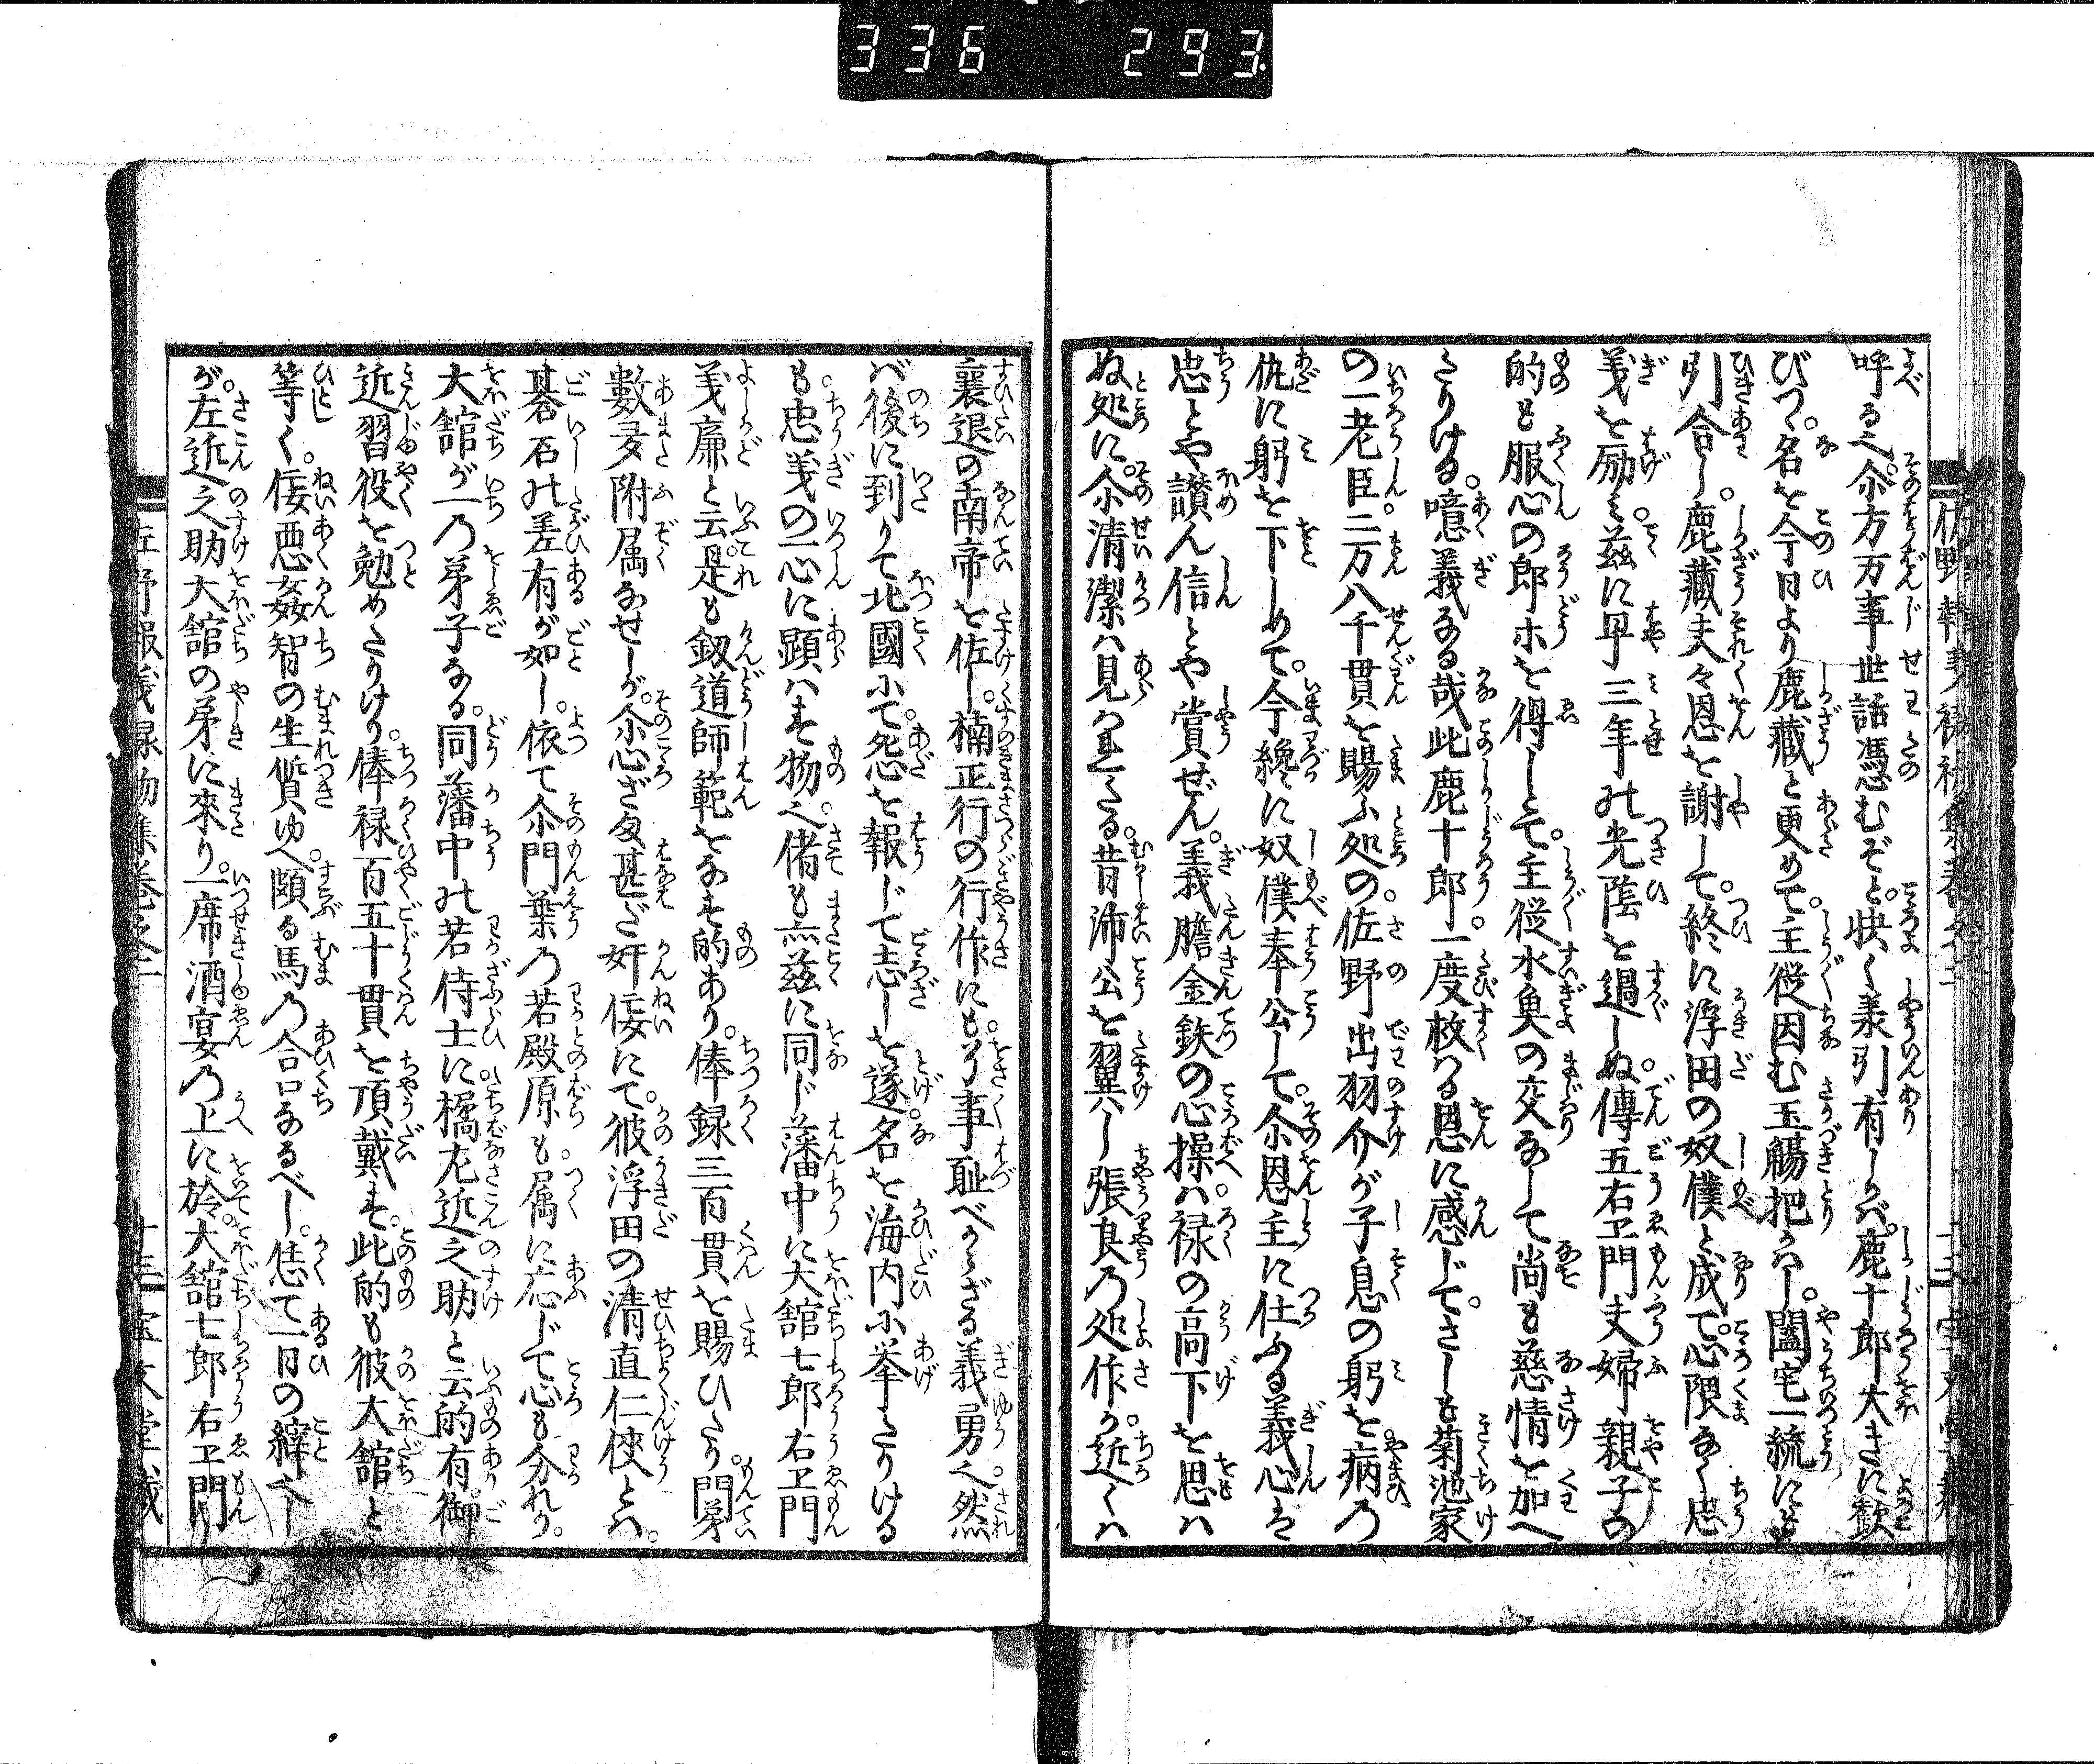 336 293
呼る也。尒方万事世話憑むぞと。快く羕引有しかば。鹿十郎大きに歓
びつ。名を今日より鹿藏と更めて。主従因む玉觴把かはし。闔宅一統にも
引合し。鹿藏夫々恩を謝して。終に浮田の奴僕と成て。心隈なく忠
義を励み。茲に早三年の光陰を過しぬ。傳五右エ門夫婦親子の
的も服心の郎等を得しとて。主従水魚の交なして尚も慈情を加へ
たりける。噫義なる哉此鹿十郎。一度救はる恩に感じて。さしも菊池家
の一老臣。二万八千貫を賜ふ処の。佐野出羽介が子息の躬を。病の
仇に躬を下しめて。今纔に奴僕奉公して。尒恩主に仕ふる義心を
忠とや讃ん信とや賞ぜん。義膽金鉄の心操は。禄の高下を思は
ぬ処に。尒清潔は見はれたる。昔沛公を翼し張良の処作か。近くは
襄退の南帝を佐し。楠正行の行作にも。事耻べからざる義勇也。然
ば後に到りて北國にて。怨を報じて志しを遂。名を海内に挙たりける
も。忠義の一心に顕はす物也。偖も亦茲に同じ藩中に大舘七郎右エ門
義廉と云。是も釼道師範をなす的あり。俸録三百貫を賜ひたり。門弟
數多附属なせしが。尒心ざま甚だ奸佞にて。彼浮田の清直仁侠とは。
碁石の差有が如し。依て尒門葉の若殿原も。属に応じて心も分れり。
大舘が一の弟子なる。同藩中の若侍士に。橘左近之助と云的有。御
近習役を勉めたりけり。俸禄百五十貫を頂戴す。此的も彼大舘と
等く。佞悪姦智の生質ゆへ。頗る馬の合口なるべし。恁て一日の縡也し
が。左近之助大舘の弟に來り。一席酒宴の上に於。大舘七郎右エ門